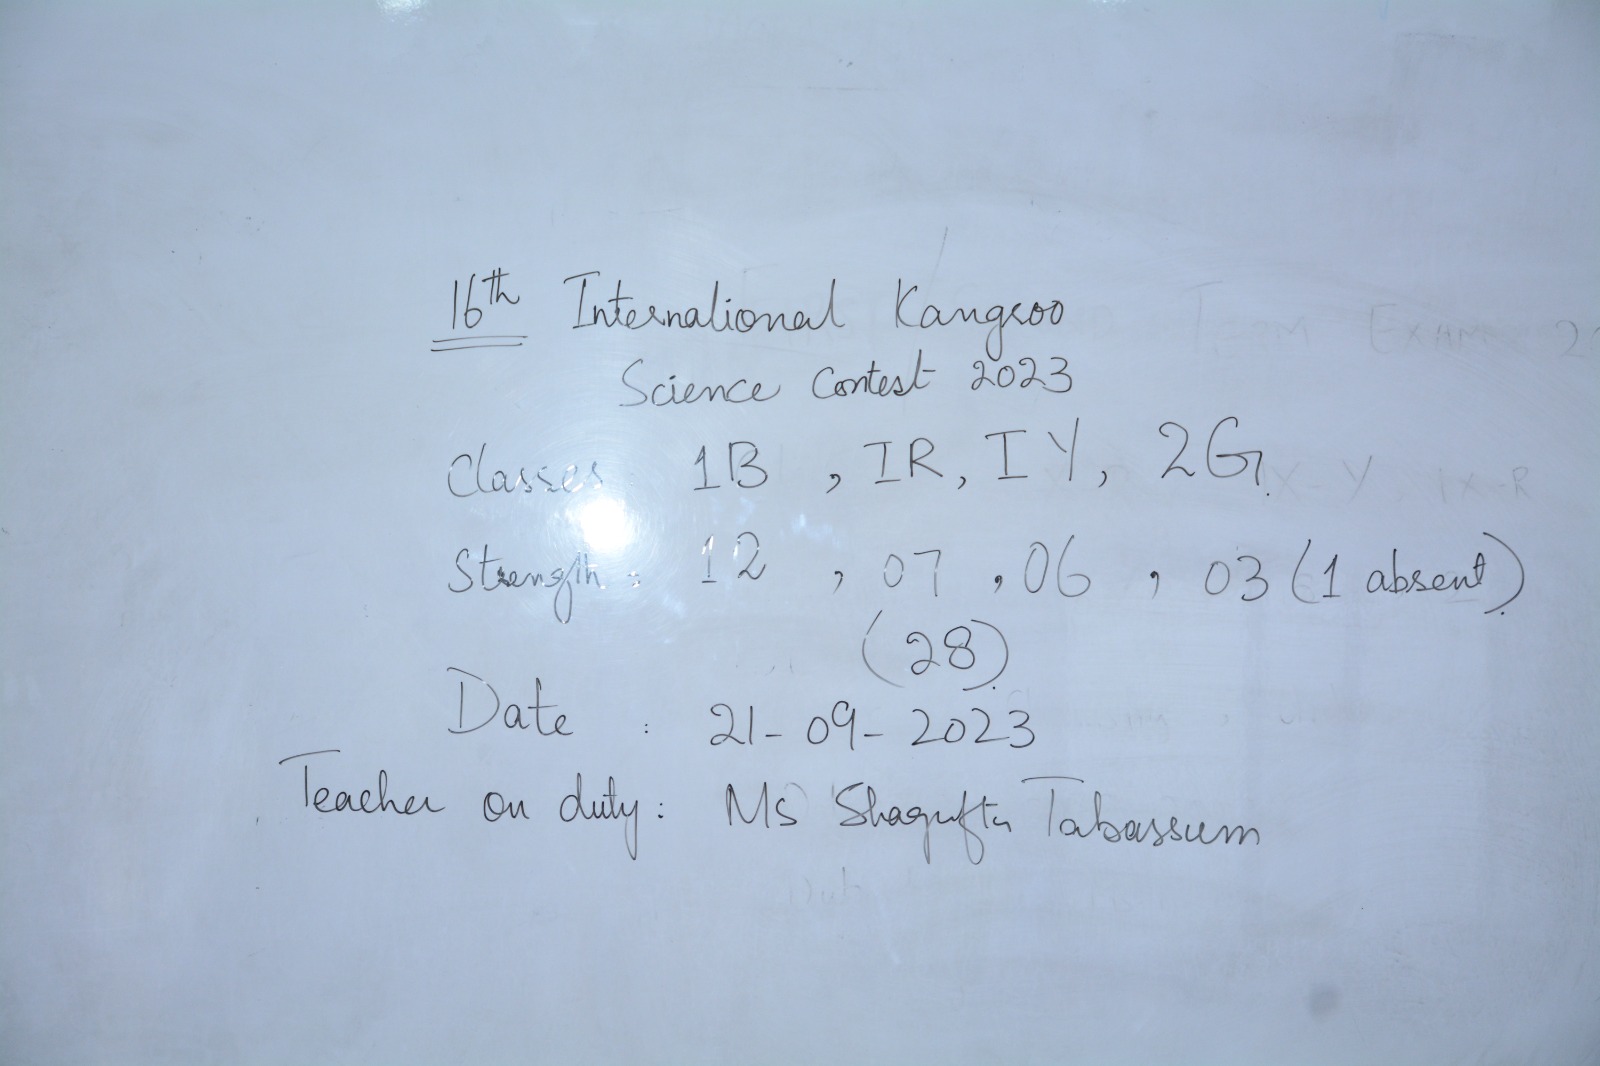 16th International Kangroo
Science Contest 2023
Classes : 1B , IR, IY, 2G.
Strength : 12 , 07 , 06 , 03 (1 absent).
(28).
Date : 21-09-2023
Teacher on duty : Ms Shagufta Tabassum
Term Exam
X-Y, IX-R